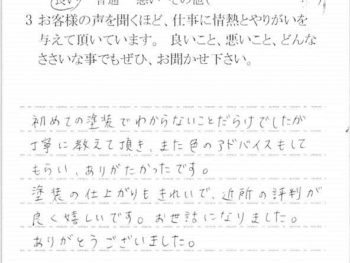 良い 普通 悪い その他(
3 お客様の声を聞くほど、仕事に情熱とやりがいを
与えて頂いています。 良いこと、悪いこと、どんな
ささいな事でもぜひ、お聞かせ下さい。
初めての塗装でわからないことだらけでしたが
丁寧に教えて頂き、また色のアドバイスもして
もらい、ありがたかったです。
塗装の仕上がりもきれいで、近所の評判が
良く嬉しいです。お世話になりました。
ありがとうございました。